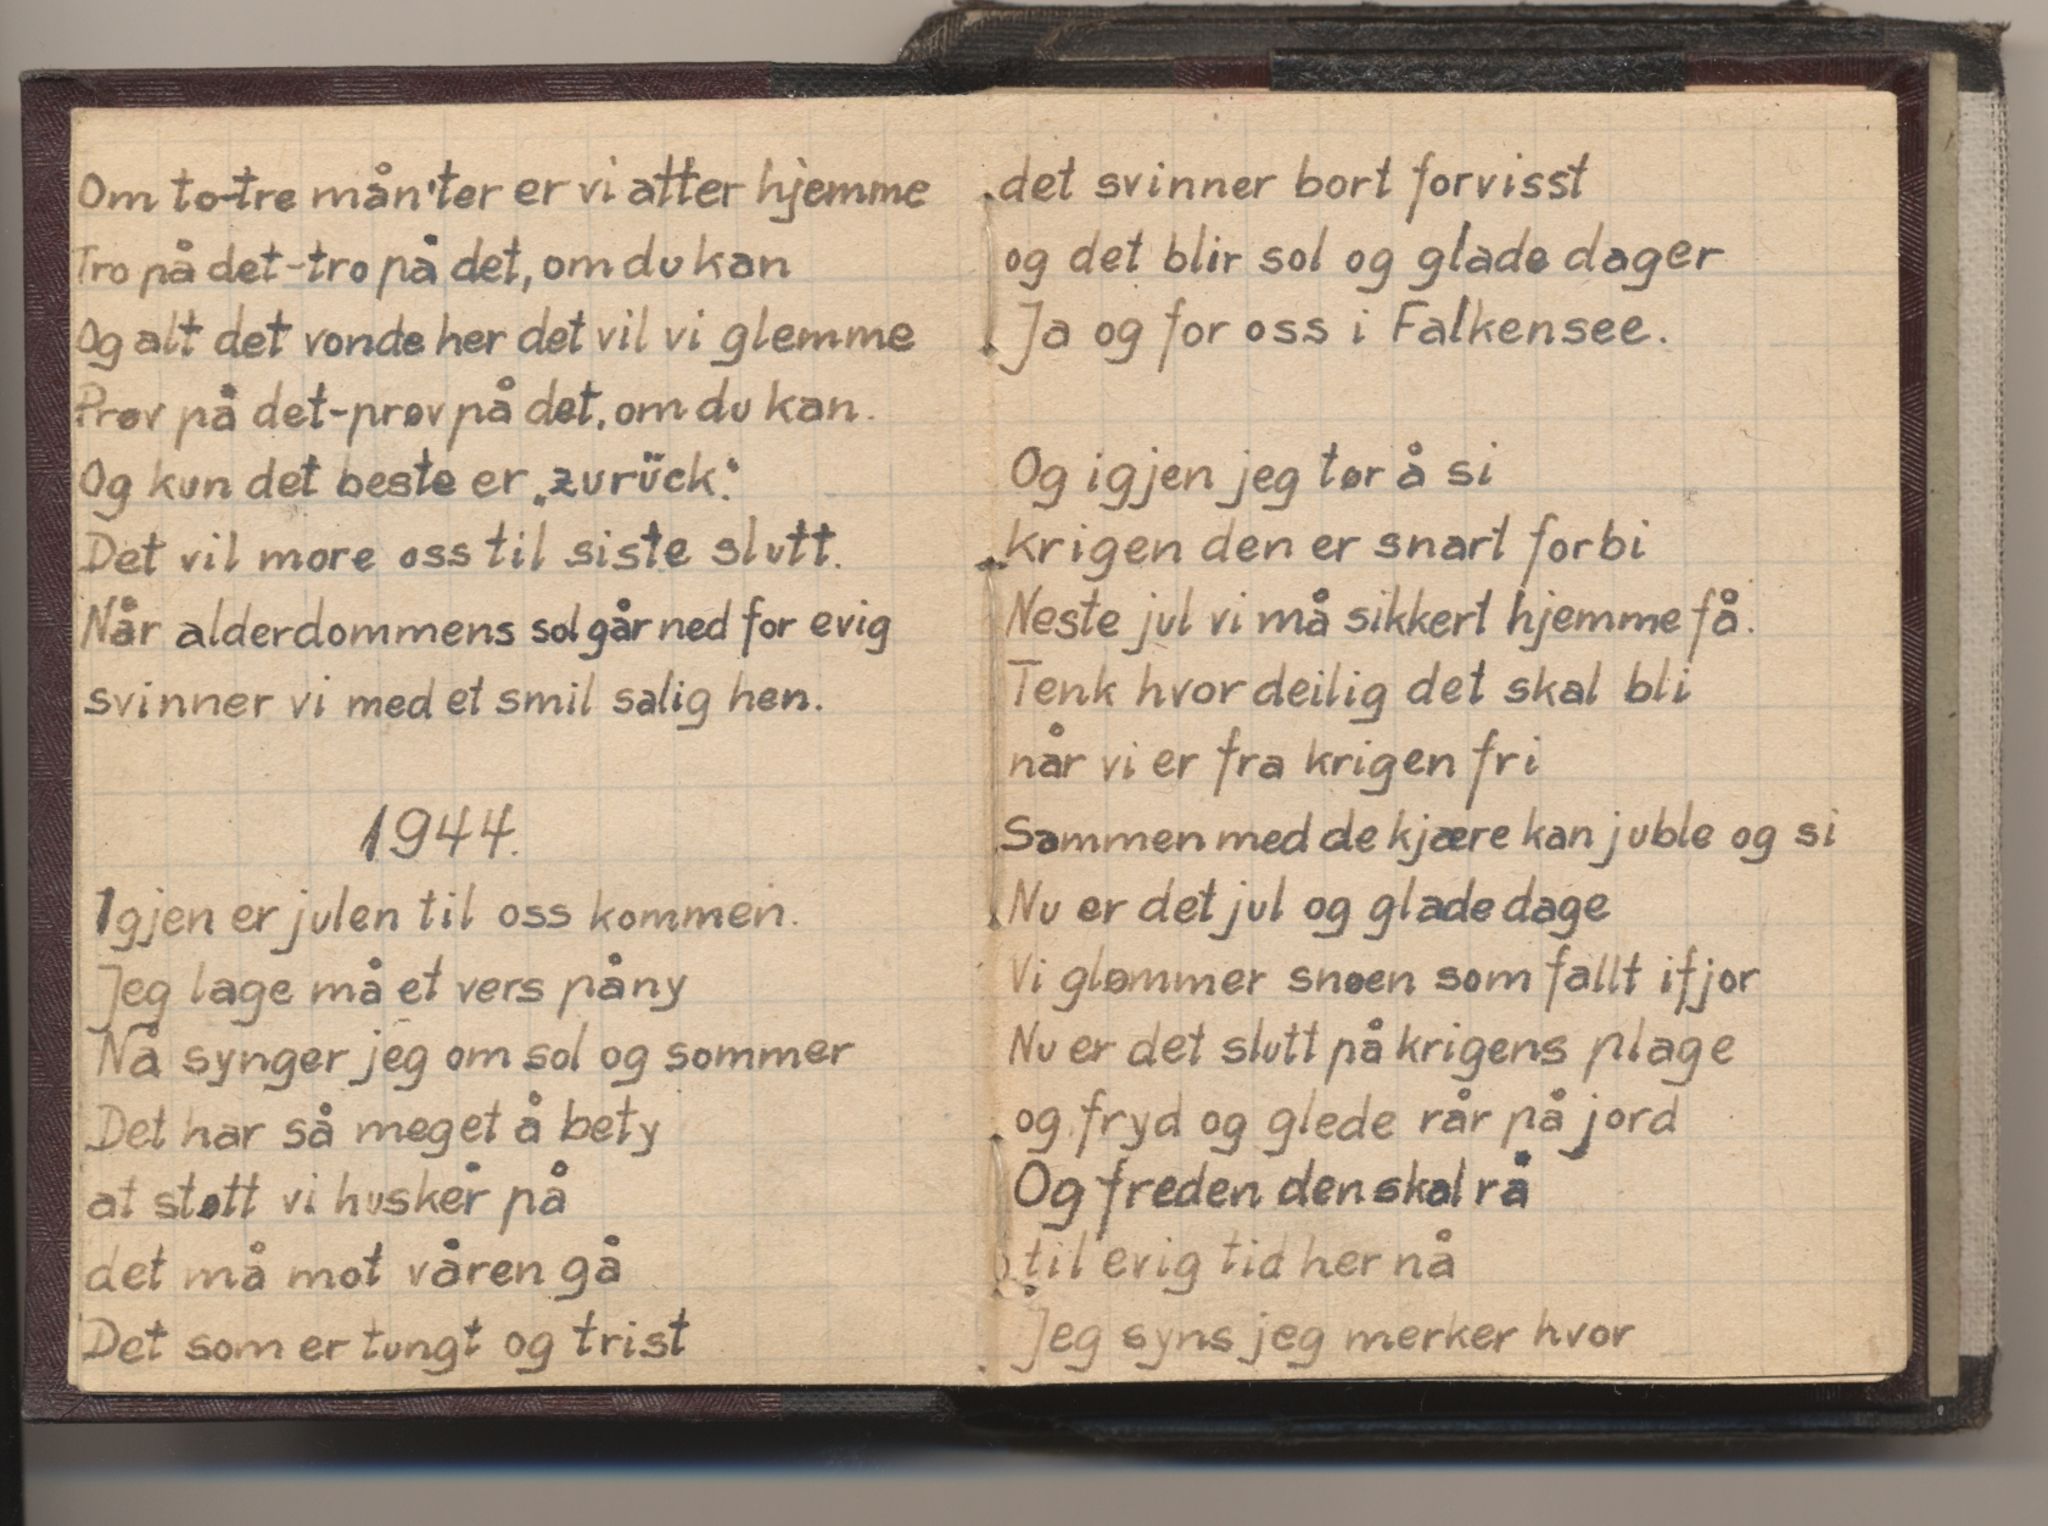 Om to-tre mån'ter er vi atter hjemme
Tro på det-tro på det, om du kan
Og alt det vonde her det vil vi glemme
Prøv på det-prøv på det, om du kan.
Og kun det beste er „zurück“.
Det vil more oss til siste slutt.
Når alderdommens sol går ned for evig
svinner vi med et smil salig hen.
1944.
Igjen er julen til oss kommen.
Jeg lage må et vers påny
Nå synger jeg om sol og sommer
Det har så meget å bety
at støtt vi husker på
det må mot våren gå
Det som er tungt og trist
det svinner bort forvisst
og det blir sol og glade dager
Ja og for oss i Falkensee.
Og igjen jeg tør å si
krigen den er snart forbi
Neste jul vi må sikkert hjemme få.
Tenk hvor deilig det skal bli
når vi er fra krigen fri
Sammen med de kjære kan juble og si
Nu er det jul og glade dage
Vi glømmer snøen som fallt ifjor
Nu er det slutt på krigens plage
og fryd og glede rår på jord
Og freden den skal rå
til evig tid her nå
Jeg syns jeg merker hvor